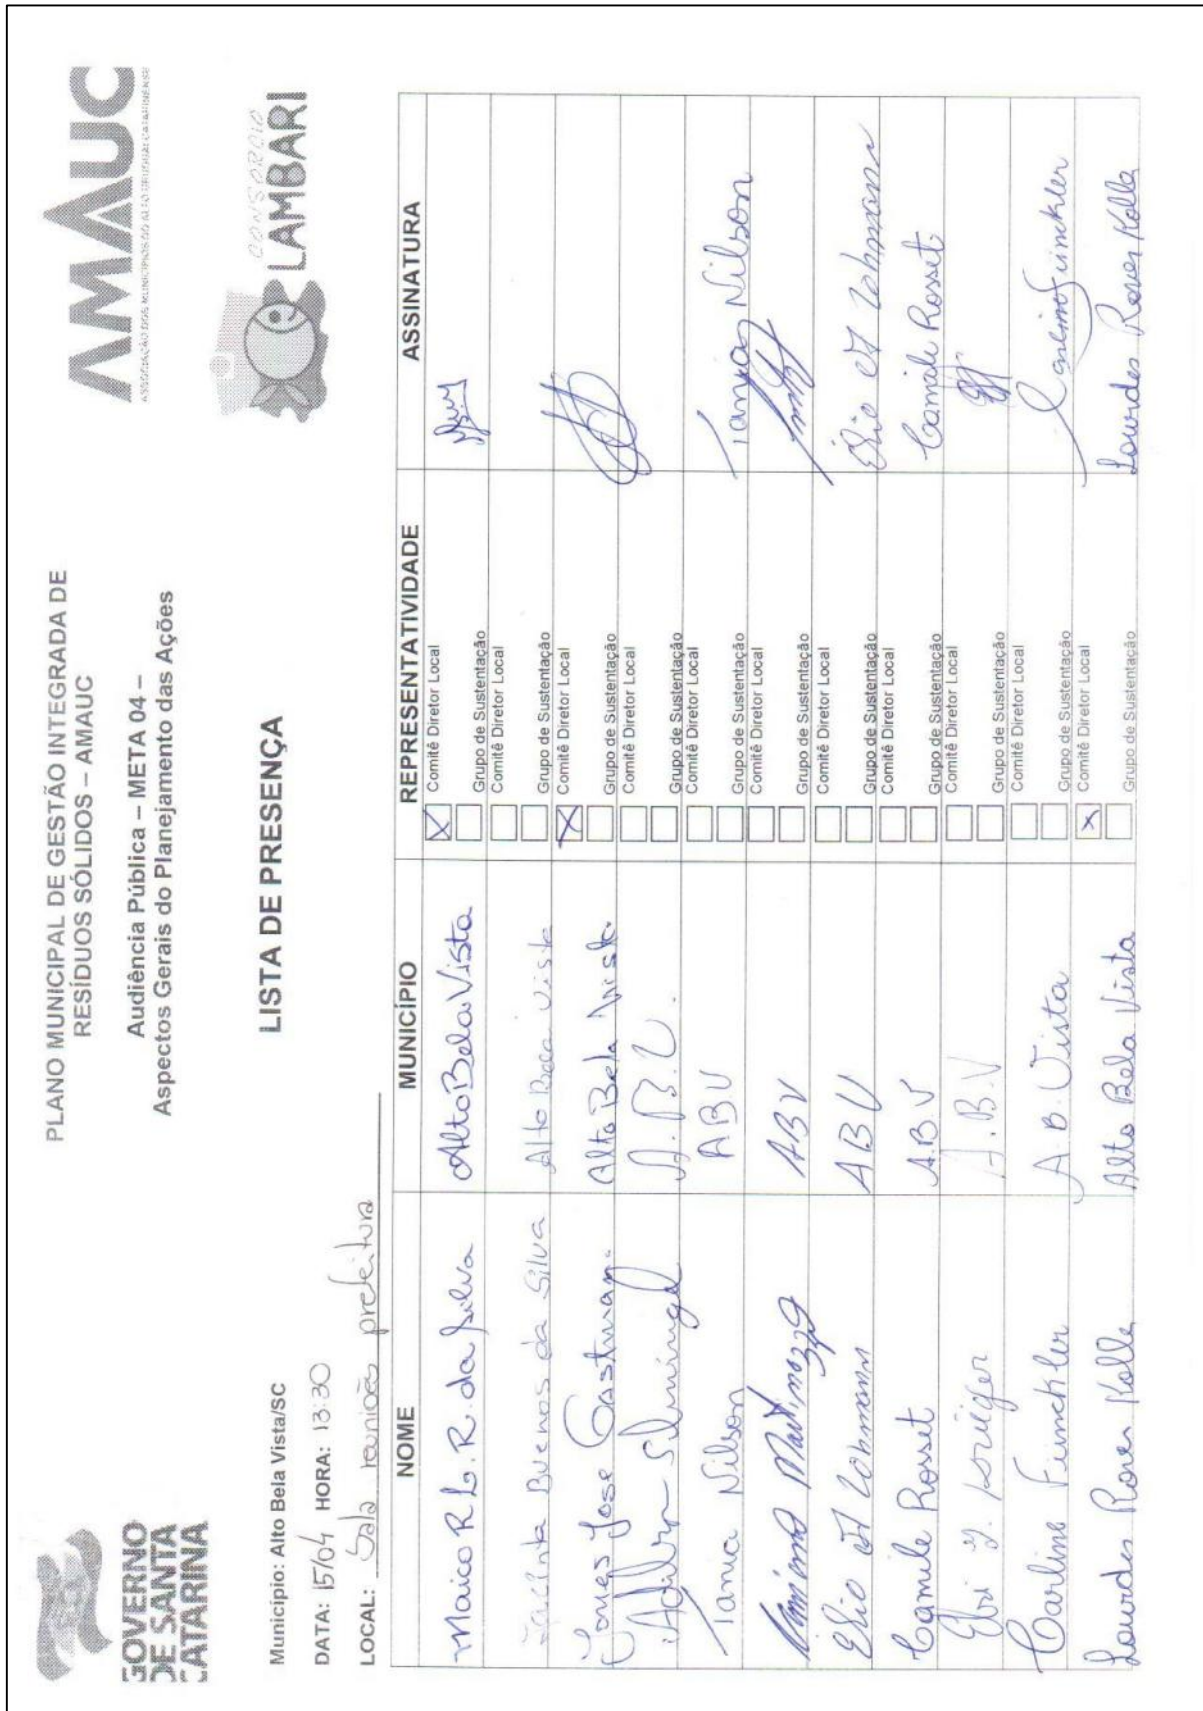 GOVERNO
DE SANTA
CATARINA
PLANO MUNICIPAL DE GESTÃO INTEGRADA DE
RESÍDUOS SÓLIDOS – AMAUC
Audiência Pública – META 04 –
Aspectos Gerais do Planejamento das Ações
AMAUC
ASSOCIAÇÃO DOS MUNICÍPIOS DO ALTO URUGUAI CATARINENSE
CONSÓRCIO
LAMBARI
LISTA DE PRESENÇA
Município: Alto Bela Vista/SC
DATA: 15/04 HORA: 13:30
LOCAL: Sala reunião prefeitura
NOME MUNICÍPIO REPRESENTATIVIDADE ASSINATURA
Maico R L. R. da Silva Alto Bela Vista X Comitê Diretor Local
Grupo de Sustentação
Jacinta Buenos da Silva Alto Bela Vista Comitê Diretor Local
Grupo de Sustentação
Jose Alto Bela Vista X Comitê Diretor Local
Grupo de Sustentação
A.B.V. Comitê Diretor Local
Grupo de Sustentação
Tania Nilson A.B.V Comitê Diretor Local Tania Nilson
Grupo de Sustentação
ABV Comitê Diretor Local
Grupo de Sustentação
Elio Lohmann ABV Comitê Diretor Local Elio Lohmann
Grupo de Sustentação
Camile Rosset A.B.V Comitê Diretor Local Camile Rosset
Grupo de Sustentação
A.B.V Comitê Diretor Local
Grupo de Sustentação
Carline Finckler A.B. Vista Comitê Diretor Local
Grupo de Sustentação
Lourdes Rover Kolln Alto Bela Vista X Comitê Diretor Local Lourdes Rover Kolln
Grupo de Sustentação